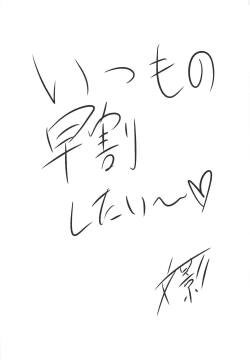 いつもの
早割
したい〜♡